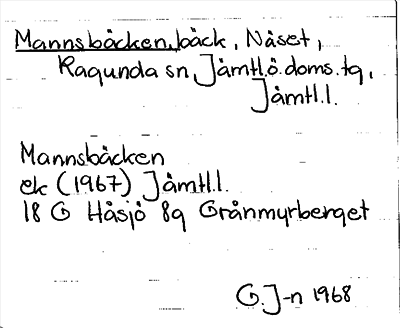 Mannsbäcken, bäck, Näset,
Ragunda sn, Jämtl.ö.doms.tg,
Jämtl.l.
Mannsbäcken
ek (1967) Jämtl.l.
18 G Håsjö 8g Grånmyrberget
G.J-n 1968